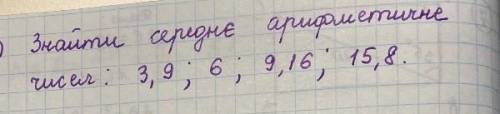 ) Знайти середнє арифметичне
чисел: 3,9; 6; 9,16; 15,8.